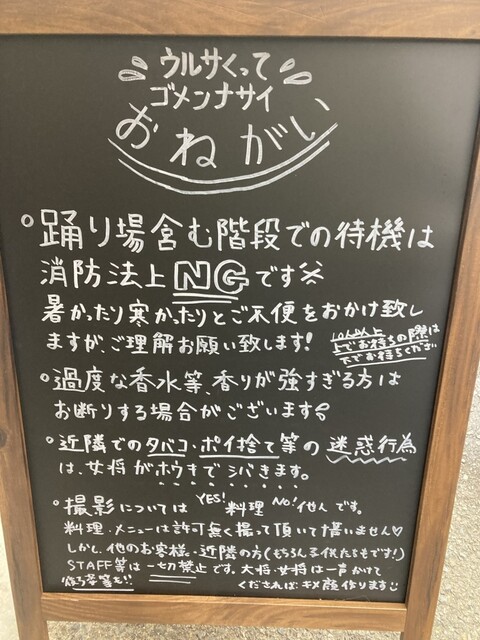 ウルサくって
ゴメンナサイ
おねがい
踊り場含む階段での待機は
消防法上NGです
暑かったり寒かったりとご不便をおかけ致し
ますが、ご理解お願い致します!
10人以上
お待ちの際は
でお待ちください
過度な香水等、香りが強すぎる方は
お断りする場合がございます
近隣でのタバコ・ポイ捨て等の迷惑行為
は、女将がホウキでシバきます。
撮影については YES! 料理 NO! 他人です。
料理・メニューは許可無く撮って頂いて構いません♡
しかし、他のお客様、近隣の方(もちろん子供たちもです!)
STAFF等は一切禁止です。大将・女将は一声かけて
くだされば、キメ顔作ります